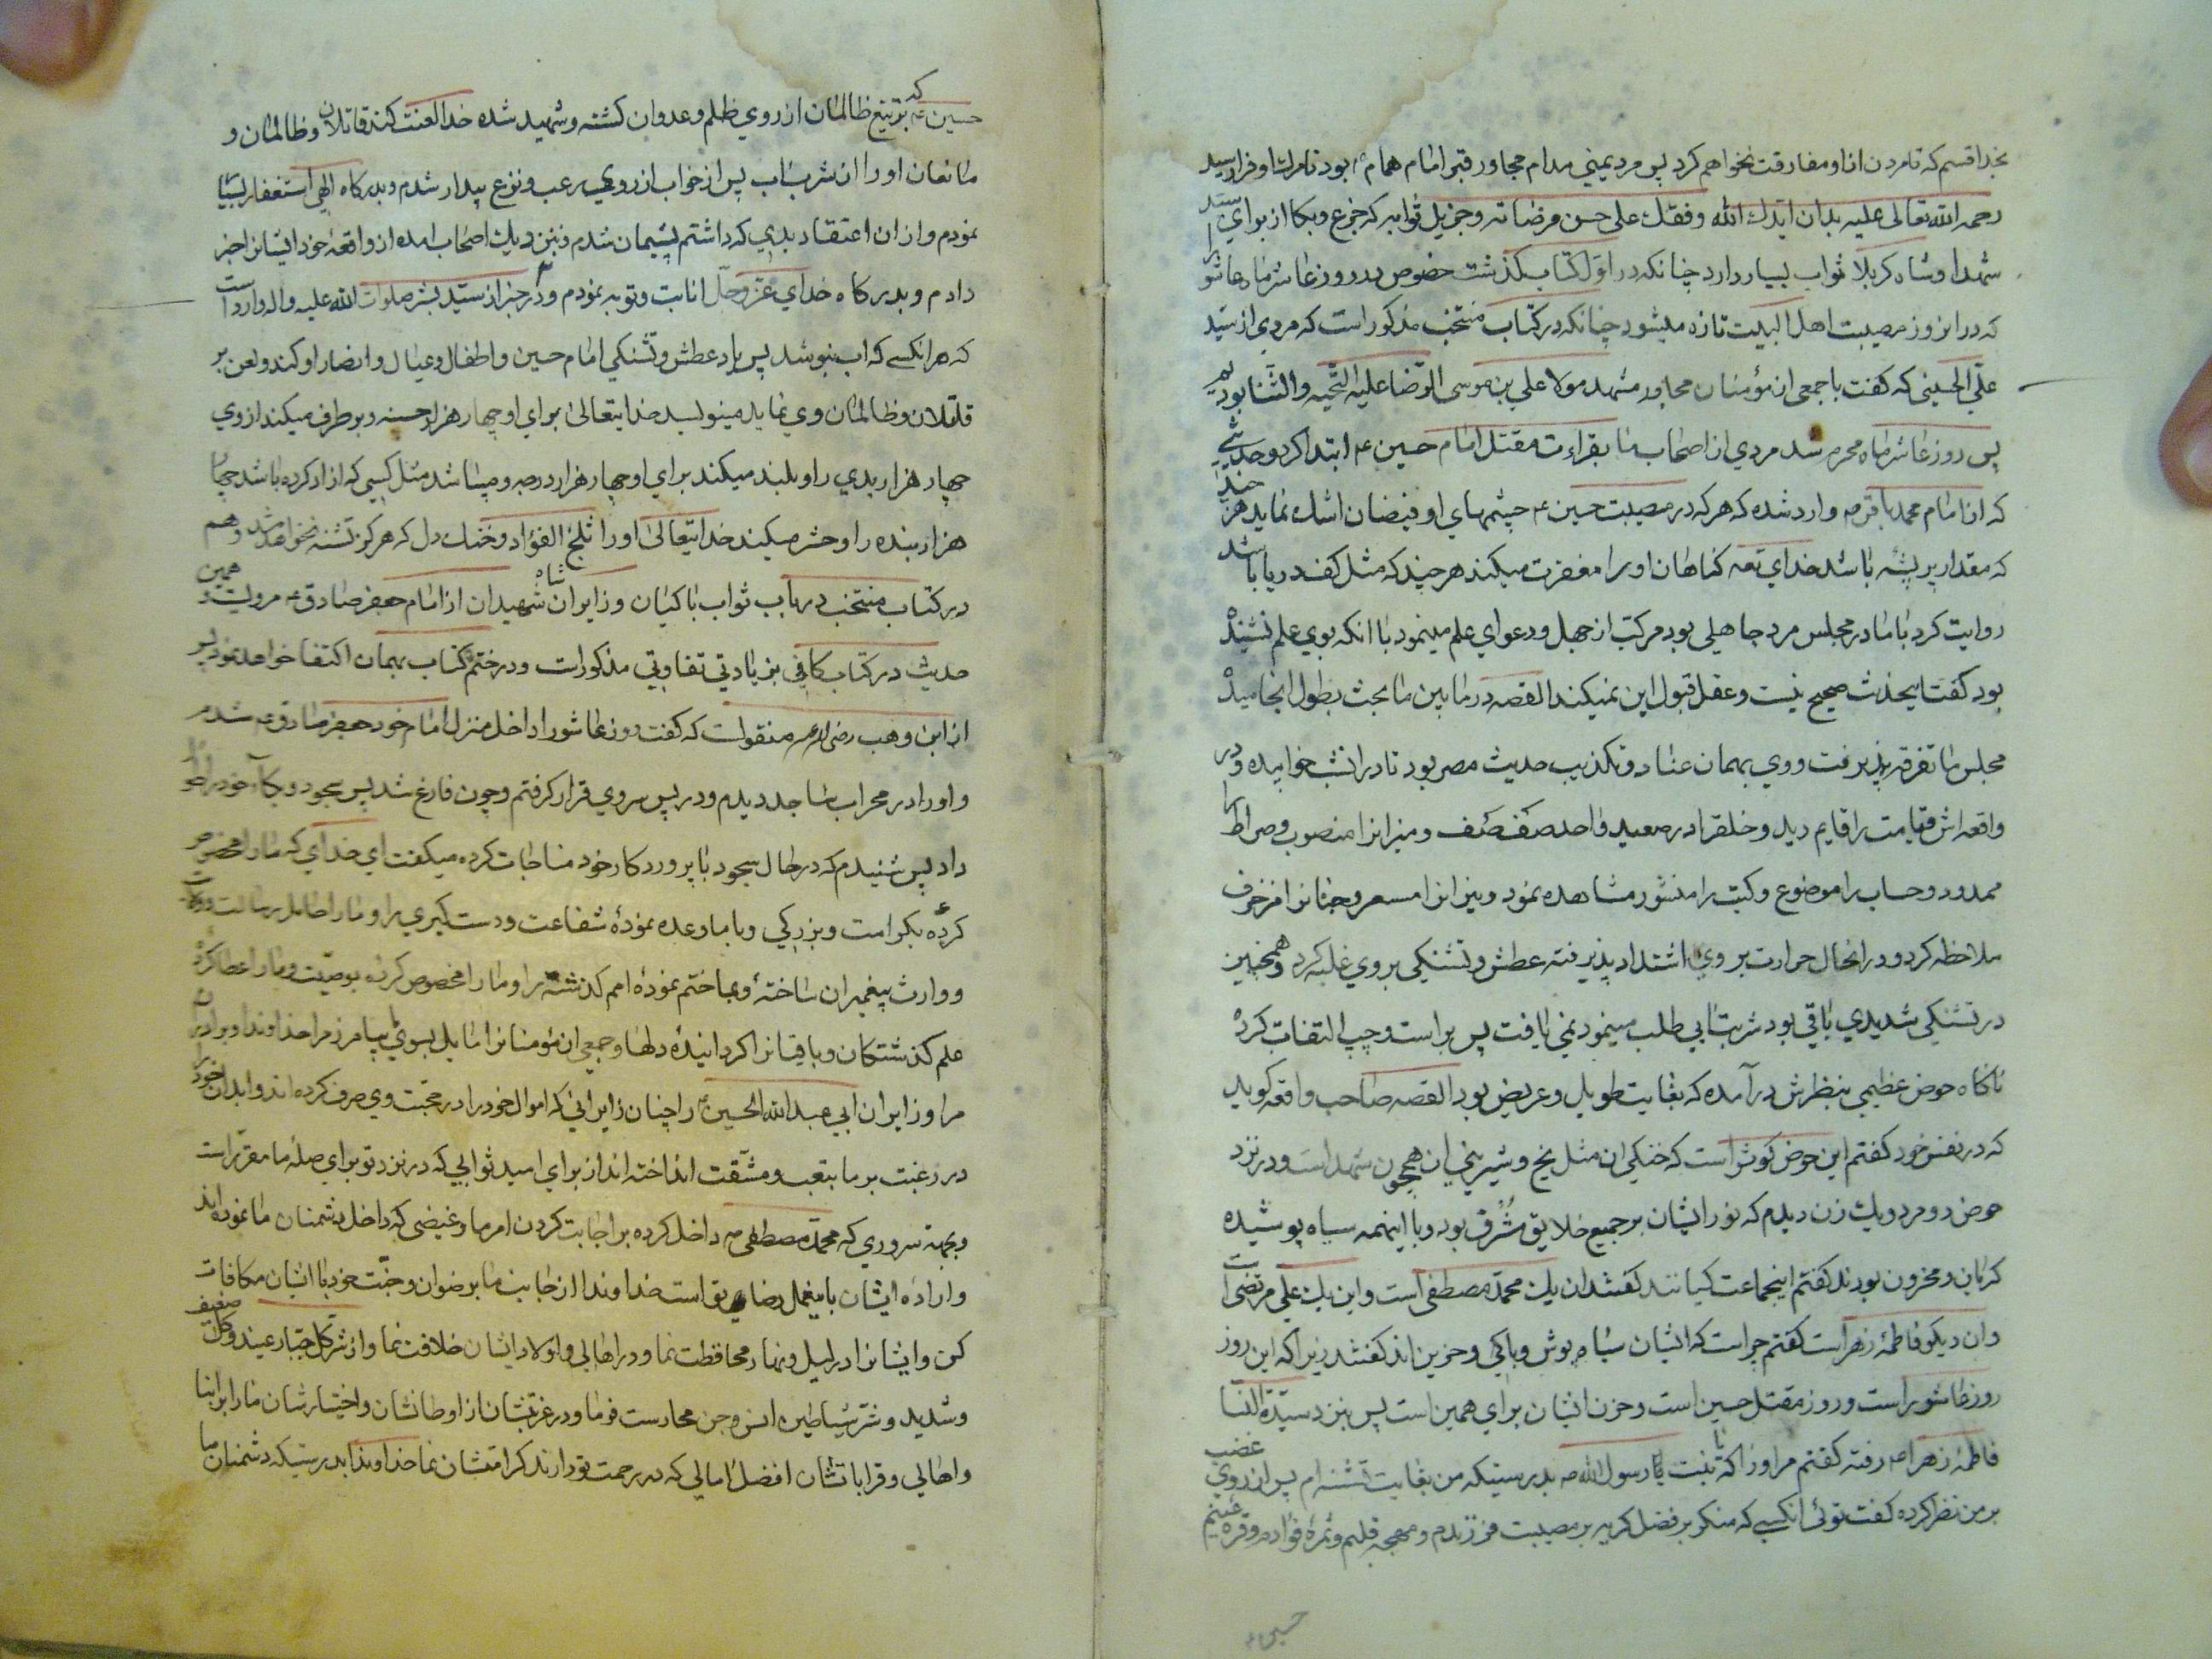 بخدا قسم که تا مردن از او مفارقت نخواهم کرد پس مرد یمینی مدام مجاور قبر امام همام ع بود تا مرک او فرا رسید
رحمه الله تعالی علیه بدان ایدک الله وفقک علی حسن مرضاته و جزیل ثوابه که جزع و بکا از برای سید
شهدا و شاه کربلا ثواب بسیار دارد چنانکه در اول کتاب کذشت خصوص در روز عاشر ماه عاشورا
که در این روز مصیبت اهل البیت تازه میشود چنانکه در کتاب منتخب مذکور است که مردی از سید
علی الحسینی که کفت با جمعی از مؤمنان مجاور مشهد مولا علی بن موسی الرضا علیه التحیه والثنا بودیم
پس روز عاشر ماه محرم شد مردی از اصحاب ما بقراءت مقتل امام حسین ع ابتدا کرد و حدیثی
که از امام محمد باقر ع وارد شده که هرکه در مصیبت حسین ع چشمهای او فیضان اشک نماید هر چند
که مقدار پر پشه باشد خدای تعه کناهان او را مغفرت میکند هرچند که مثل کف دریا باشد
روایت کرد با ما در مجلس مرد جاهلی بود مرکب از جهل و دعوای علم مینمود با انکه بوی علم نشنیده
بود کفت اینحدیث صحیح نیست و عقل قبول این نمیکند القصه در مابین ما بحث بطول انجامیده
مجلس ما تفرقه پذیرفت و وی بهمان عناد و تکذیب حدیث مصر بود تا در انشب خوابیده و در
واقعه اش قیامت را قایم دید و خلق را در صعید واحد صف صف و میزانرا منصوب و صراط را
ممدود و حساب را موضوع و کتب را منشور مشاهده نمود و نیرانرا مسعر و جنانرا مزخرف
ملاحظه کرد و در انحال حرارت بر وی اشتداد پذیرفته عطش و تشنکی بر وی غلبه کرد و همچنین
در تشنکی شدیدی باقی بود شربت ابی طلب مینمود نمی یافت پس براست و چپ التفات کرده
ناکاه حوض عظیمی بنظرش درآمده که بغایت طویل و عریض بود القصه صاحب واقعه کوید
که در نفس خود کفتم این حوض کوثر است که خنکی ان مثل یخ و شیرینی ان همچون شهد است و در نزد
حوض دو مرد و یک زن دیدم که نور ایشان بر جمیع خلایق مشرق بود و با اینهمه سیاه پوشیده
کریان و محزون بودند کفتم اینجماعت کیانند کفتند ان یک محمد مصطفی است و این یک علی مرتضی است
وان دیکر فاطمهٔ زهراست کفتم چراست که ایشان سیاه پوش و باکی و حزین اند کفتند زیرا که این روز
روز عاشوراست و روز مقتل حسین است و حزن ایشان برای همین است پس بنزد سیدة النسا
فاطمهٔ زهرا ع رفته کفتم مر او را که یا بنت رسول الله ص بدرستیکه من بغایت تشنه ام پس از روی غضب
بر من نظر کرده کفت توئی انکسی که منکر بر فضل کریه بر مصیبت فرزندم و مهجه قلبم و ثمرهٔ فؤادم و قره عینم
حسین ع
حسین ع که بر تیغ ظالمان از روی ظلم و عدوان کشته و شهید شده خدا لعنت کند قاتلان و ظالمان و
مانعان او را از شرب اب پس از خواب از روی رعب و فزع بیدار شدم و بدرکاه الهی استغفار بسیار
نمودم و از ان اعتقاد بدی که داشتم پشیمان شدم و بنزدیک اصحاب امده از واقعهٔ خود ایشانرا خبر
دادم و بدرکاه خدای عز و جل انابت و توبه نمودم و در خبر از سید بشر صلوات الله علیه واله وارد است
که هر انکسی که اب بنوشد پس یاد عطش و تشنکی امام حسین و اطفال و عیال و انصار او کند و لعن بر
قاتلان و ظالمان وی نماید مینویسد خدایتعالی برای او چهار هزار حسنه و بر طرف میکند از وی
چهار هزار بدی را و بلند میکند برای او چهار هزار درجه و میباشد مثل کسی که ازاد کرده باشد چهار
هزار بنده را و حشر میکند خدایتعالی او را ثلج الفؤاد و خنک دل که هرکز تشنه نخواهد شد و هم
در کتاب منتخب در باب ثواب باکیان و زایران شاه شهیدان از امام جعفر صادق ع مرویست و همین
حدیث در کتاب کافی بزیادتی تفاوتی مذکور است و در ختم کتاب بهمان اکتفا خواهد نمود پس
از ابن وهب رضی الله عنه منقولست که کفت روز عاشورا داخل منزل امام خود جعفر صادق ع شدم
و او را در محراب ساجد دیدم و در پس سر وی قرار کرفتم و چون فارغ شد پس سجود و بکاء خود را طول
داد پس شنیدم که در حال سجود با پروردکار خود مناجات کرده میکفت ای خدای که ما را مخصوص
کردهٔ بکرامت و بزرکی و با ما وعده نمودهٔ شفاعت و دستکیری را و ما را حامل رسالت
و وارث پیغمبران ساختهٔ و بما ختم نمودهٔ امم کذشته را و ما را مخصوص کردهٔ بوصیت و ما را عطا کردهٔ
علم کذشتکان و باقیانرا کردانیدهٔ دلها و جمعی از مؤمنانرا مایل بسوی ما بیامرز مرا خداوندا و برادران
مرا و زایران ابی عبدالله الحسین ع را چنان زایرانی که اموال خود را در محبت وی صرف کرده اند و ابدان خود را
در رغبت بر ما بتعب و مشقت انداخته اند از برای امید ثوابی که در نزد تو برای صلهٔ ما مقرر است
و بجهة سروری که محمد مصطفی ص داخل کرده بر اجابت کردن امر ما و غیضی که داخل دشمنان ما نموده اند
و ارادهٔ ایشان باینعمل رضای تو است خداوندا از جانب ما برضوان و جنت خود با ایشان مکافات
کن و ایشانرا در لیل و نهار محافظت نما و در اهالی و اولاد ایشان خلافت نما و از شر کل جبار عنید و کل ضعیف
و شدید و شر شیاطین انس و جن محارست فرما و در غربتشان از اوطانشان و اختیارشان ما را بر ابنا
و اهالی و قراباتشان افضل امالی که در رحمت تو دارند کرامتشان نما خداوندا بدرستیکه دشمنان ما